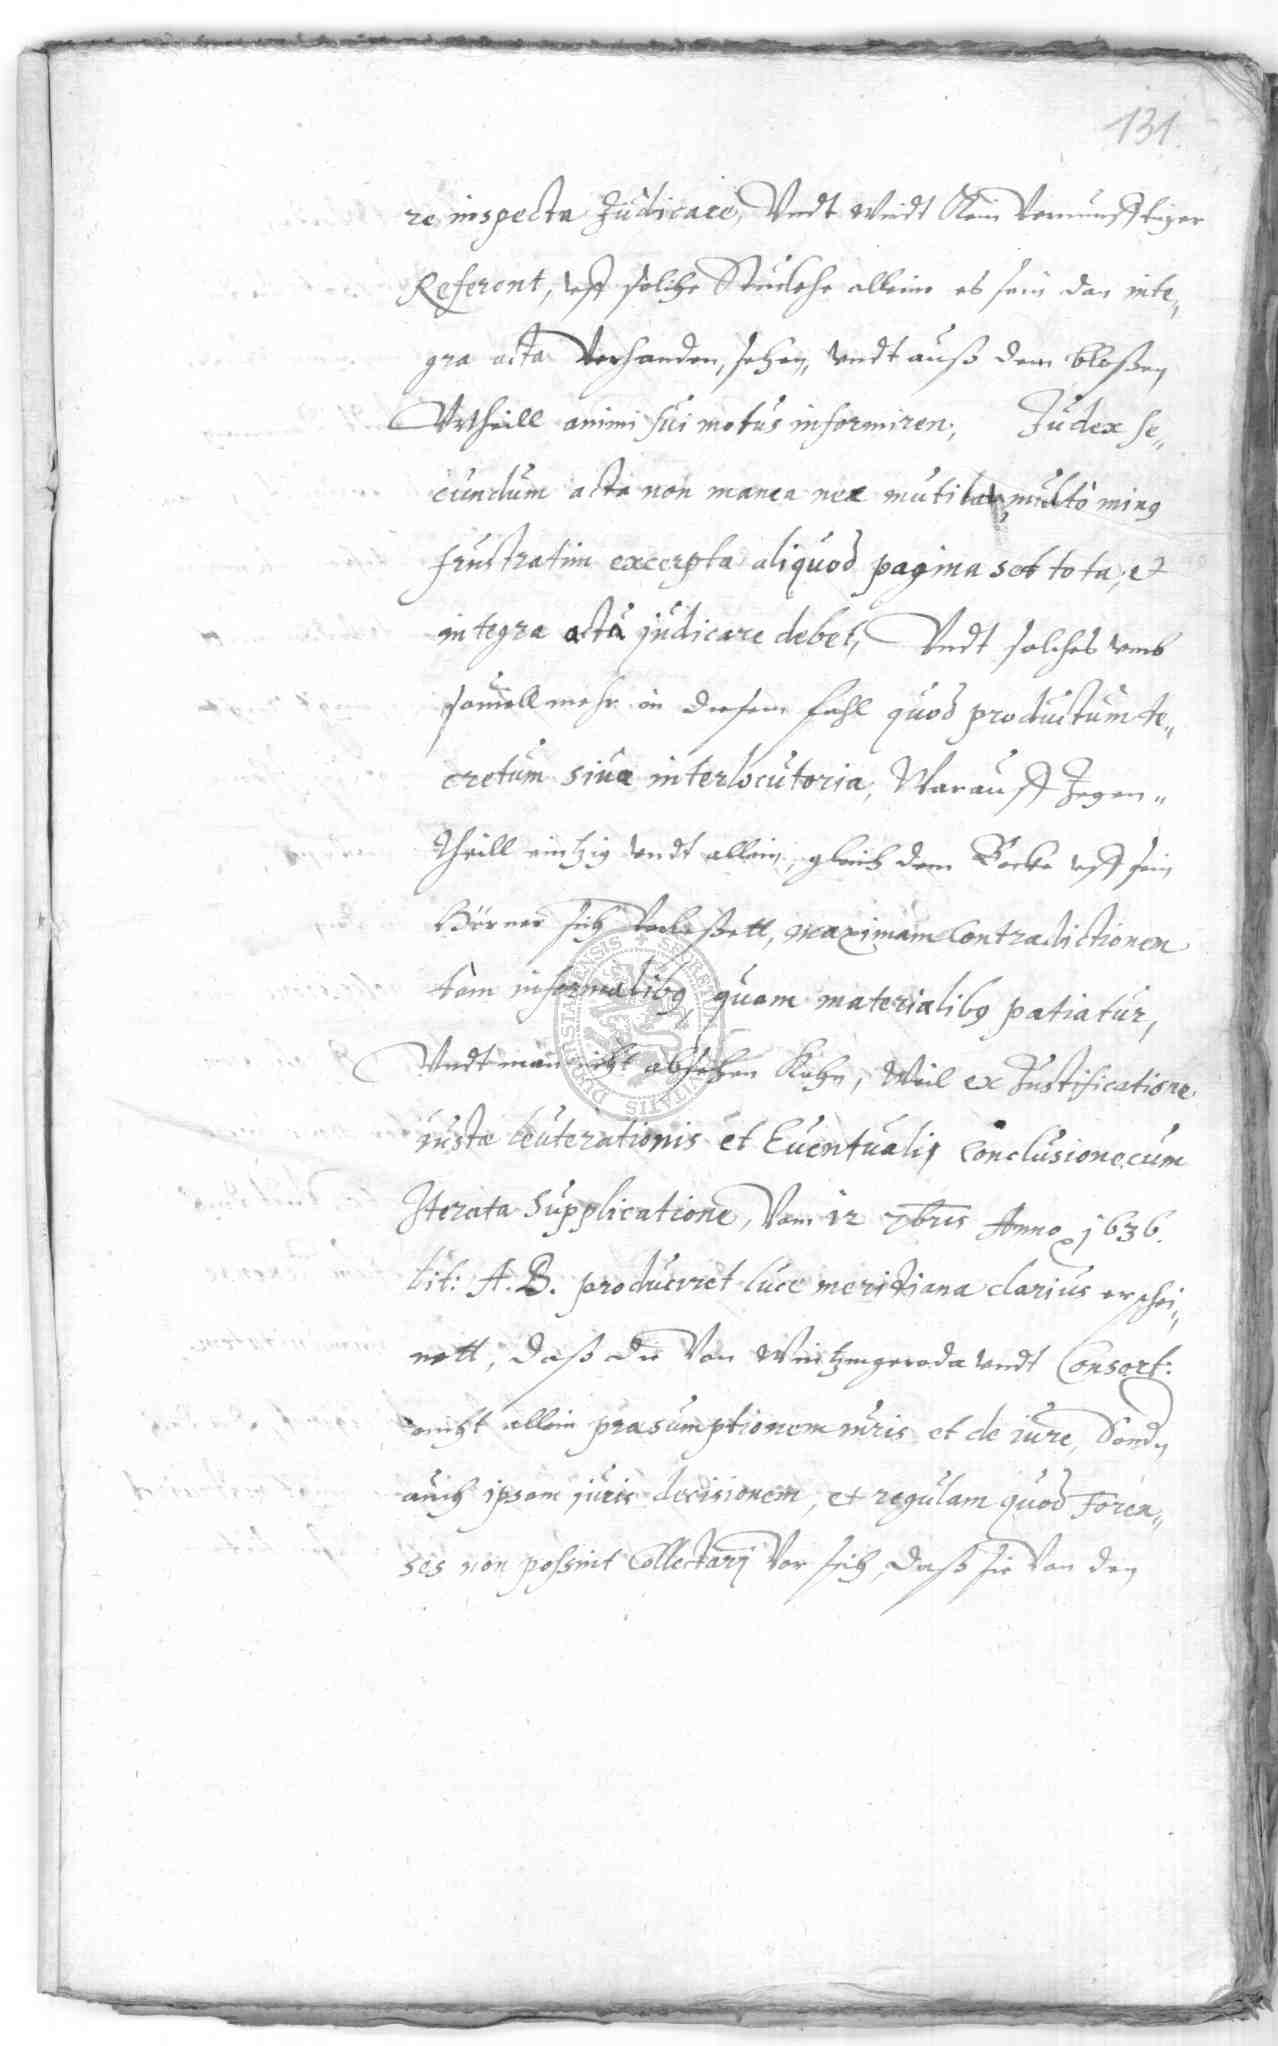 131.
re inspecta Judicare, Vndt wirdt Kein vernunfftiger
Referent, vff solche Stucke alleine es sein dan inte„
gra acta Vorhanden, sehen, vndt auß dem bloßen
Vrtheill animi sui motus informiren, Judex se„
cundum acta non manca nec mutila, multo minꝰ
frustratim excerpta aliquod pagina set tota, et
integra acta judicare debet, Vndt solches vmb
souiell mehr in diesem fahl quod productum de„
cretum siue interlocutoria, Warauff Gegen„
theill eintzig vndt allein, gleich dem Bocke vff sein
Hörner sich verleßett, maximam Contradictionem
tam in formalibꝰ quam materialibꝰ patiatur,
Vndt man nicht absehen Kahn, Weil ex Justificatione
iustæ leuterationis et Euentualis Conclusione cum
Iterata Supplicatione, Vom 12 7bris Anno 1636.
Lit: A. B. produciret luce meridiana clarius erschei„
nett, daß die Von Wintzingeroda vndt Consort:
nicht allein præsumptionem iuris et de iure, Sondn
auch ipsam juris decisionem, et regulam quod Foren„
ses non possint Collectarj Vor sich, daß sie Von den
SIGILLUM UNIVERSITATIS